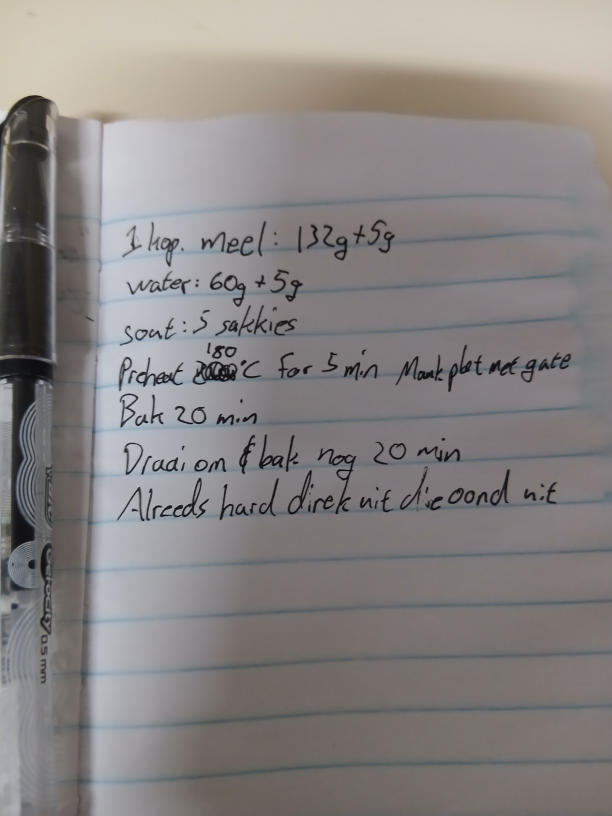 1 kop. meel: 132g+5g
water: 60g+5g
sout: 5 sakkies
180
Preheat °C for 5 min Maak plat met gate
Bak 20 min
Draai om & bak nog 20 min
Alreeds hard direk uit die oond uit
0.5 mm